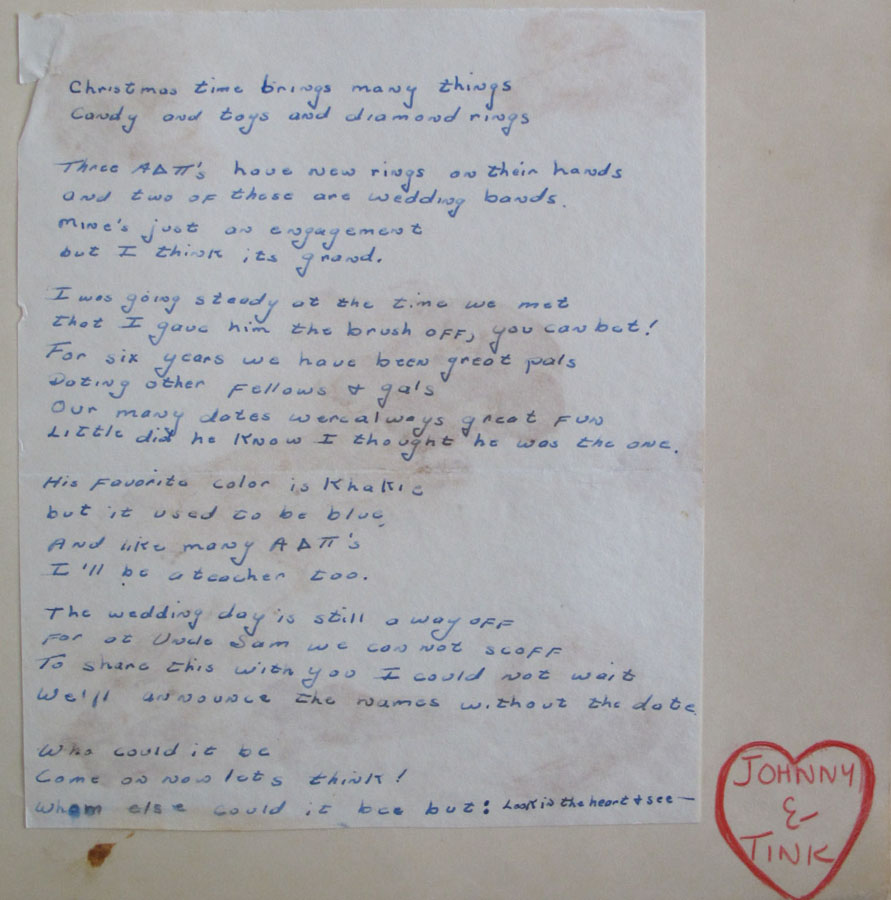 Christmas time brings many things
Candy and toys and diamond rings
Three ΑΔΠ's have new rings on their hands
and two of these are wedding bands.
Mine's just an engagement
but I think its grand.
I was going steady at the time we met
that I gave him the brush off, you can bet!
For six years we have been great pals
Dating other fellows & gals
Our many dates were always great fun
Little did he know I thought he was the one.
His favorite color is Khakie
but it used to be blue,
And like many ΑΔΠ's
I'll be a teacher too.
The wedding day is still a way off
For at Uncle Sam we can not scoff
To share this with you I could not wait
We'll announce the names without the date
Who could it be
Come on now lets think!
Whom else could it bee but: Look in the heart & see —
JOHNNY
&
TINK